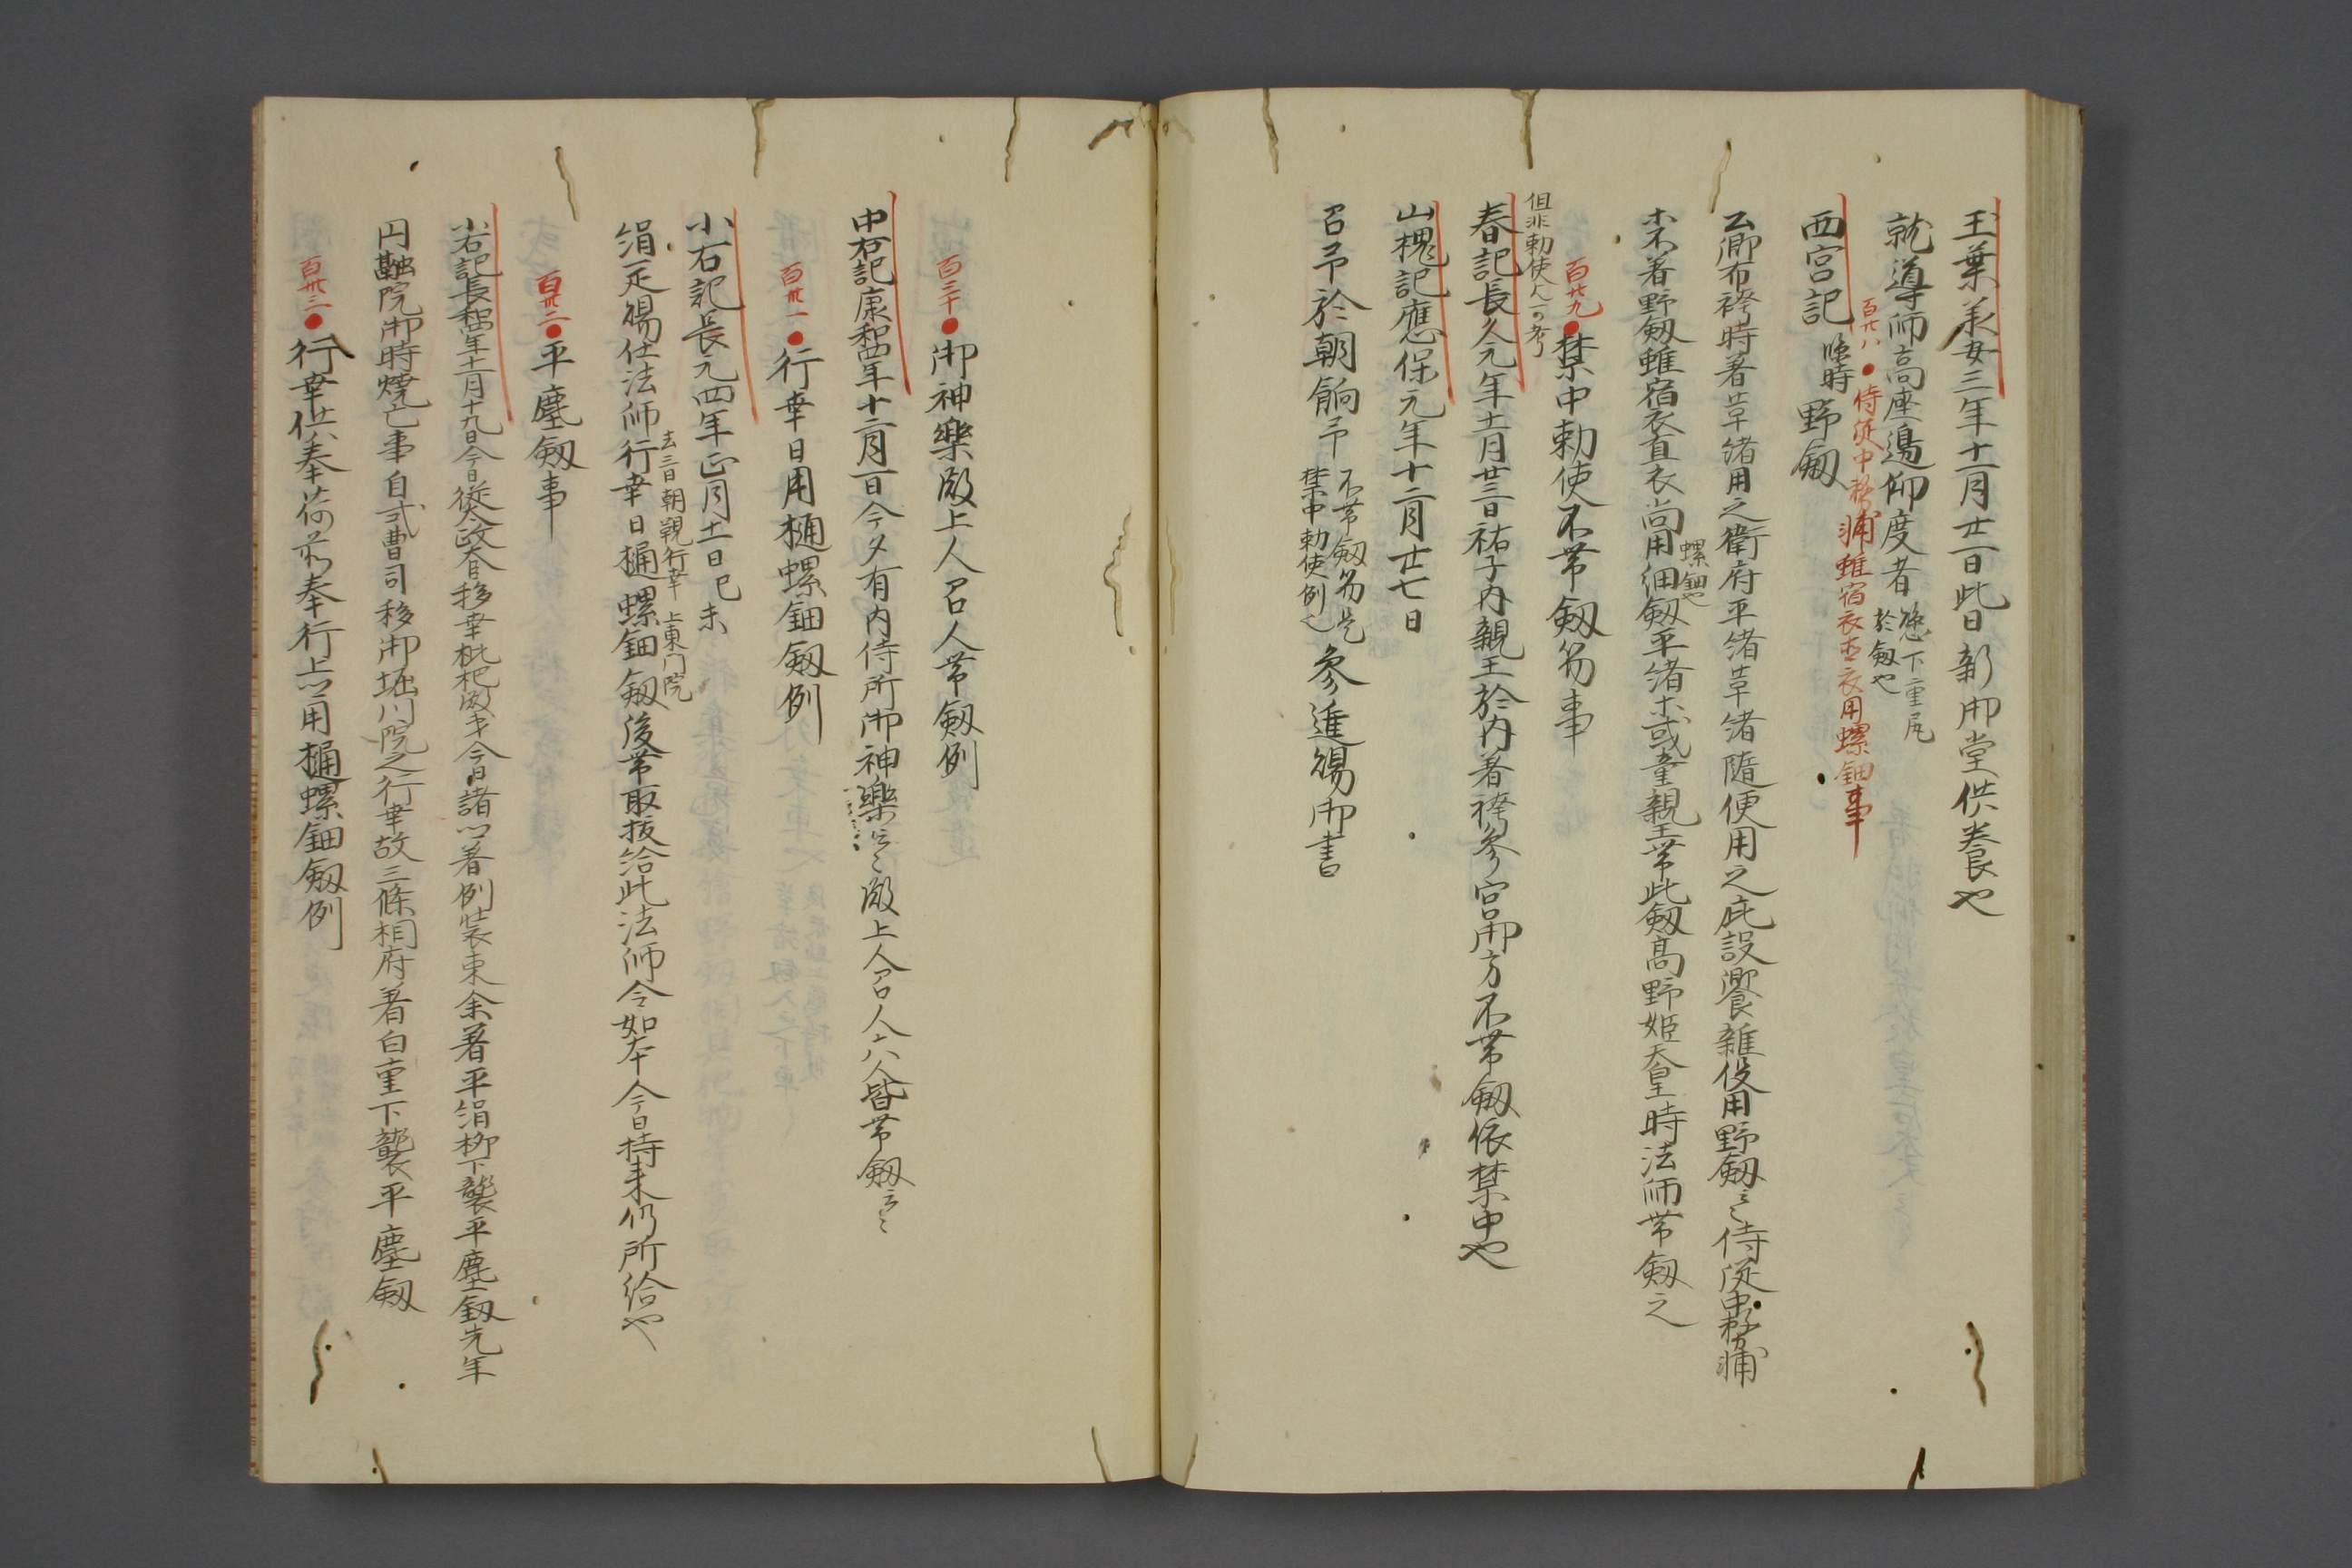 玉葉承安三年十一月廿一日此日新御堂供養也
就導師高座邊仰度者 懸下重尻 於劔也
百廿八●侍従中務輔雖宿衣直衣用螺鈿事
西宮記 臨時 野劔
公卿布袴時著草緒用之衛府平緒草緒随便用之庇設饗雑役用野劔云々侍従中務輔
未不著野劔雖宿衣直衣尚用細劔平緒未或童親王帯此劔高野姫天皇時法師帯劔之
螺鈿也
百廿九●禁中勅使不帯劔笏事
但非勅使人可考
春記長久元年十一月廿三日祐子内親王於内著袴参宮御方不帯劔依禁中也
山槐記應保元年十二月廿七日
召予於朝餉予 不帯劔笏是 禁中勅使例也 参進賜御書
百三十●御神樂殿上人召人帯劔例
中右記康和四年十二月一日今夕有内侍所御神樂云々殿上人召人六八人皆帯劔云々
百卅一●行幸日用樋螺鈿劔例
小右記長元四年正月十一日己未
絹一疋賜仕法師行幸日樋螺鈿劔後帯取抜給此法師令如本今日持来仍所給也
去三日朝覲行幸 上東門院
百卅二●平塵劔事
小右記長和四年十一月十九日今日従太政大臣移幸枇杷殿才今日諸卿著例装束余著平絹柳下襲平塵劔先年
円融院御時焼亡事自式曹司移御堀川院之行幸故三條相府著白重下襲平塵劔
百卅三●行幸供奉荷前奉行上卿用樋螺鈿劔例